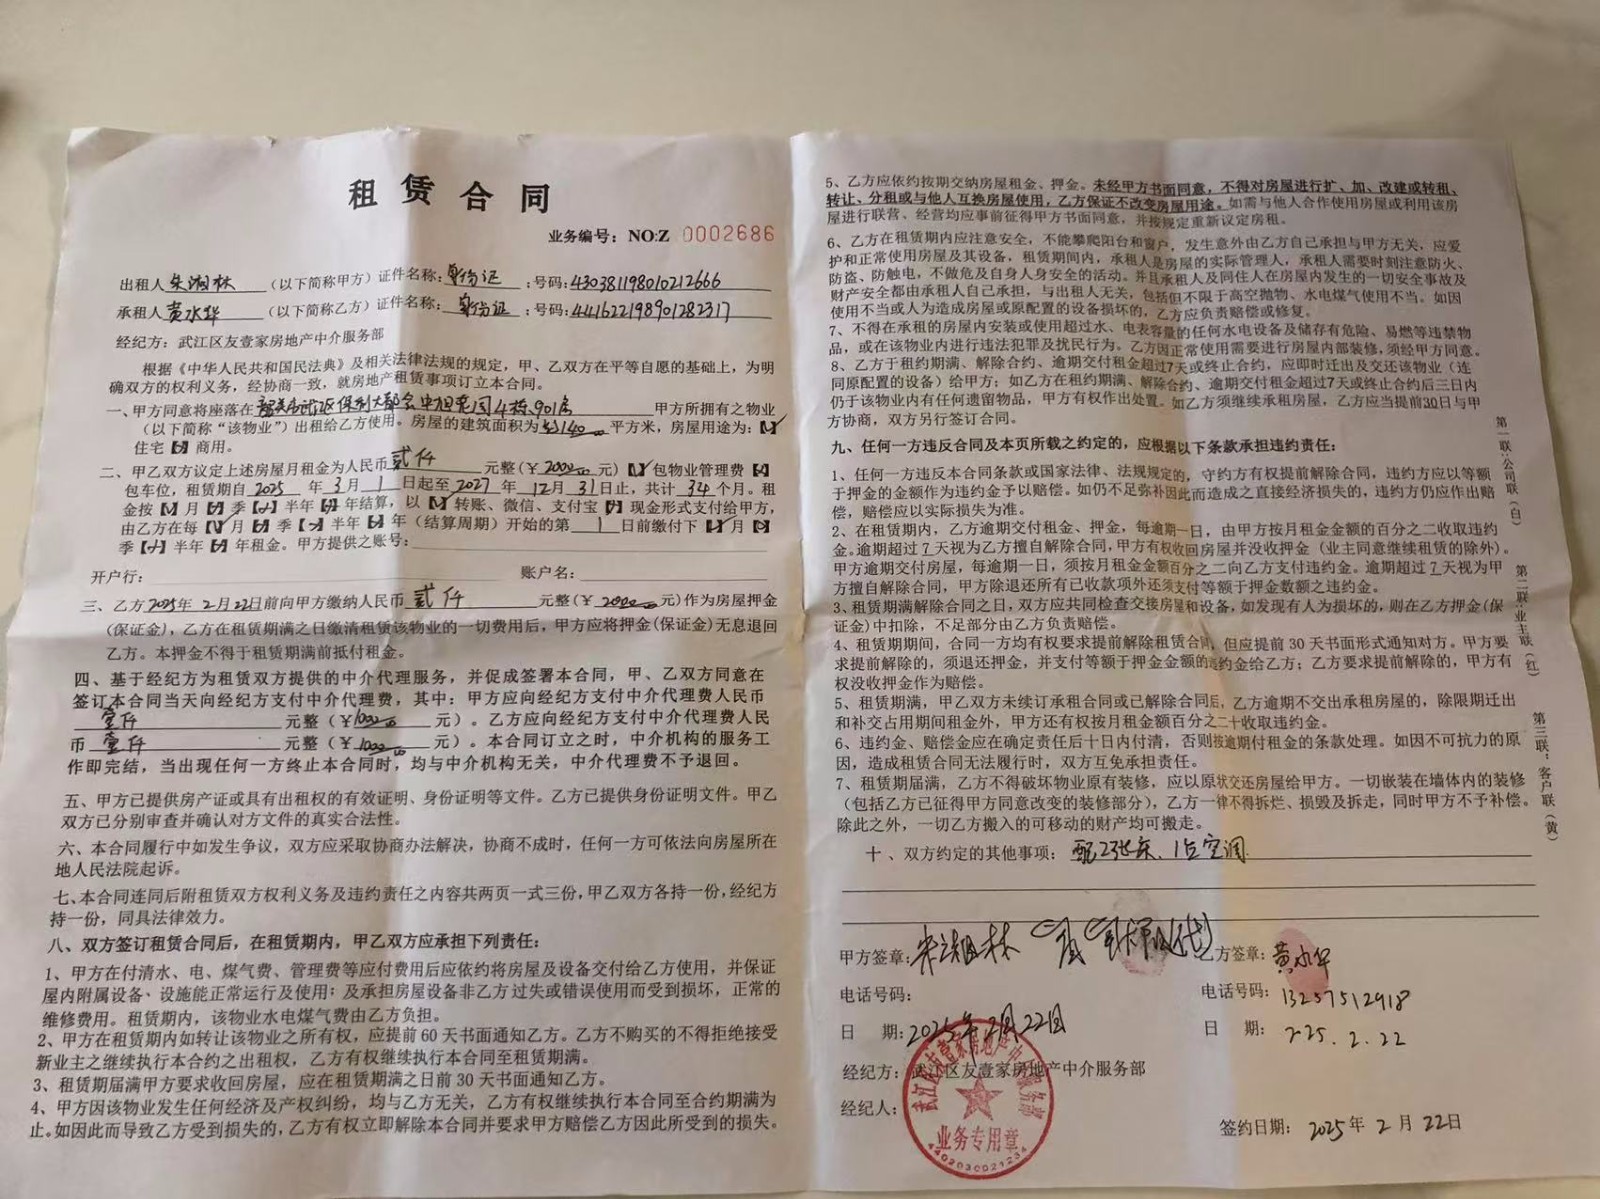 租赁合同
业务编号：NO:Z 0002686
出租人朱湘林（以下简称甲方）证件名称：身份证；号码：430381198010212666
承租人黄水华（以下简称乙方）证件名称：身份证；号码：441622198901282317
经纪方：武江区友壹家房地产中介服务部
根据《中华人民共和国民法典》及相关法律法规的规定，甲、乙双方在平等自愿的基础上，为明
确双方的权利义务，经协商一致，就房地产租赁事项订立本合同。
一、甲方同意将座落在韶关市武江区保利大都会中旭爱园4栋901房甲方所拥有之物业
（以下简称“该物业”）出租给乙方使用。房屋的建筑面积为约140平方米，房屋用途为：【✓】
住宅【】商用。
二、甲乙双方议定上述房屋月租金为人民币贰仟元整（￥2000元）【】包物业管理费【】
包车位，租赁期自2025年3月1日起至2027年12月31日止，共计34个月。租
金按【】月【】季【】半年【】年结算，以【】转账、微信、支付宝【】现金形式支付给甲方，
由乙方在每【】月【】季【】半年【】年（结算周期）开始的第1日前缴付下【】月【】
季【】半年【】年租金。甲方提供之账号：
开户行： 账户名：
三、乙方2025年2月22日前向甲方缴纳人民币贰仟元整（￥2000元）作为房屋押金
（保证金），乙方在租赁期满之日缴清租赁该物业的一切费用后，甲方应将押金（保证金）无息退回
乙方。本押金不得于租赁期满前抵付租金。
四、基于经纪方为租赁双方提供的中介代理服务，并促成签署本合同，甲、乙双方同意在
签订本合同当天向经纪方支付中介代理费，其中：甲方应向经纪方支付中介代理费人民币
壹仟元整（￥1000元）。乙方应向经纪方支付中介代理费人民
币壹仟元整（￥1000元）。本合同订立之时，中介机构的服务工
作即完结，当出现任何一方终止本合同时，均与中介机构无关，中介代理费不予退回。
五、甲方已提供房产证或具有出租权的有效证明、身份证明等文件。乙方已提供身份证明文件。甲乙
双方已分别审查并确认对方文件的真实合法性。
六、本合同履行中如发生争议，双方应采取协商办法解决，协商不成时，任何一方可依法向房屋所在
地人民法院起诉。
七、本合同连同后附租赁双方权利义务及违约责任之内容共两页一式三份，甲乙双方各持一份，经纪方
持一份，同具法律效力。
八、双方签订租赁合同后，在租赁期内，甲乙双方应承担下列责任：
1、甲方在付清水、电、煤气费、管理费等应付费用后应依约将房屋及设备交付给乙方使用，并保证
屋内附属设备、设施能正常运行及使用；及承担房屋设备非乙方过失或错误使用而受到损坏，正常的
维修费用。租赁期内，该物业水电煤气费由乙方负担。
2、甲方在租赁期内如转让该物业之所有权，应提前60天书面通知乙方。乙方不购买的不得拒绝接受
新业主之继续执行本合约之出租权，乙方有权继续执行本合同至租赁期满。
3、租赁期届满甲方要求收回房屋，应在租赁期满之日前30天书面通知乙方。
4、甲方因该物业发生任何经济及产权纠纷，均与乙方无关，乙方有权继续执行本合同至合约期满为
止。如因此而导致乙方受到损失的，乙方有权立即解除本合同并要求甲方赔偿乙方因此所受到的损失。
5、乙方应依约按期交纳房屋租金、押金。未经甲方书面同意，不得对房屋进行扩、加、改建或转租、
转让、分租或与他人互换房屋使用，乙方保证不改变房屋用途。如需与他人合作使用房屋或利用该房
屋进行联营、经营均应事前征得甲方书面同意，并按规定重新议定房租。
6、乙方在租赁期内应注意安全，不能攀爬阳台和窗户，发生意外由乙方自己承担与甲方无关，应爱
护和正常使用房屋及其设备，租赁期间内，承租人是房屋的实际管理人，承租人需要时刻注意防火、
防盗、防触电，不做危及自身人身安全的活动。并且承租人及同住人在房屋内发生的一切安全事故及
财产安全都由承租人自己承担，与出租人无关，包括但不限于高空抛物、水电煤气使用不当。如因
使用不当或人为造成房屋或原配置的设备损坏的，乙方应负责赔偿或修复。
7、不得在承租的房屋内安装或使用超过水、电表容量的任何水电设备及储存有危险、易燃等违禁物
品，或在该物业内进行违法犯罪及扰民行为。乙方因正常使用需要进行房屋内部装修，须经甲方同意。
8、乙方于租约期满、解除合约、逾期交付租金超过7天或终止合约，应即时迁出及交还该物业（连
同原配置的设备）给甲方；如乙方在租约期满、解除合约、逾期交付租金超过7天或终止合约后三日内
仍于该物业内有任何遗留物品，甲方有权作出处置。如乙方须继续承租房屋，乙方应当提前30日与甲
方协商，双方另行签订合同。
九、任何一方违反合同及本页所载之约定的，应根据以下条款承担违约责任：
1、任何一方违反本合同条款或国家法律、法规规定的，守约方有权提前解除合同，违约方应以等额
于押金的金额作为违约金予以赔偿。如仍不足弥补因此而造成之直接经济损失的，违约方仍应作出赔
偿，赔偿应以实际损失为准。
2、在租赁期内，乙方逾期交付租金、押金，每逾期一日，由甲方按月租金金额的百分之二收取违约
金。逾期超过7天视为乙方擅自解除合同，甲方有权收回房屋并没收押金（业主同意继续租赁的除外）。
甲方逾期交付房屋，每逾期一日，须按月租金金额百分之二向乙方支付违约金。逾期超过7天视为甲
方擅自解除合同，甲方除退还所有已收款项外还须支付等额于押金数额之违约金。
3、租赁期满解除合同之日，双方应共同检查交接房屋和设备，如发现有人为损坏的，则在乙方押金（保
证金）中扣除，不足部分由乙方负责赔偿。
4、租赁期期间，合同一方均有权要求提前解除租赁合同，但应提前30天书面形式通知对方。甲方要
求提前解除的，须退还押金，并支付等额于押金金额的违约金给乙方；乙方要求提前解除的，甲方有
权没收押金作为赔偿。
5、租赁期满，甲乙双方未续订承租合同或已解除合同后，乙方逾期不交出承租房屋的，除限期迁出
和补交占用期间租金外，甲方还有权按月租金额百分之二十收取违约金。
6、违约金、赔偿金应在确定责任后十日内付清，否则按逾期付租金的条款处理。如因不可抗力的原
因，造成租赁合同无法履行时，双方互免承担责任。
7、租赁期届满，乙方不得破坏物业原有装修，应以原状交还房屋给甲方。一切嵌装在墙体内的装修
（包括乙方已征得甲方同意改变的装修部分），乙方一律不得拆烂、损毁及拆走，同时甲方不予补偿。
除此之外，一切乙方搬入的可移动的财产均可搬走。
十、双方约定的其他事项：配2张床、1台空调
甲方签章：朱湘林 乙方签章：黄水华
电话号码： 电话号码：13257512918
日 期：2025年2月22日 日 期：2025.2.22
经纪方：武江区友壹家房地产中介服务部
经纪人：
签约日期：2025年2月22日
武江区友壹家房地产中介服务部
业务专用章
4402030021234
第一联：公司联（白）
第二联：业主联（红）
第三联：客户联（黄）